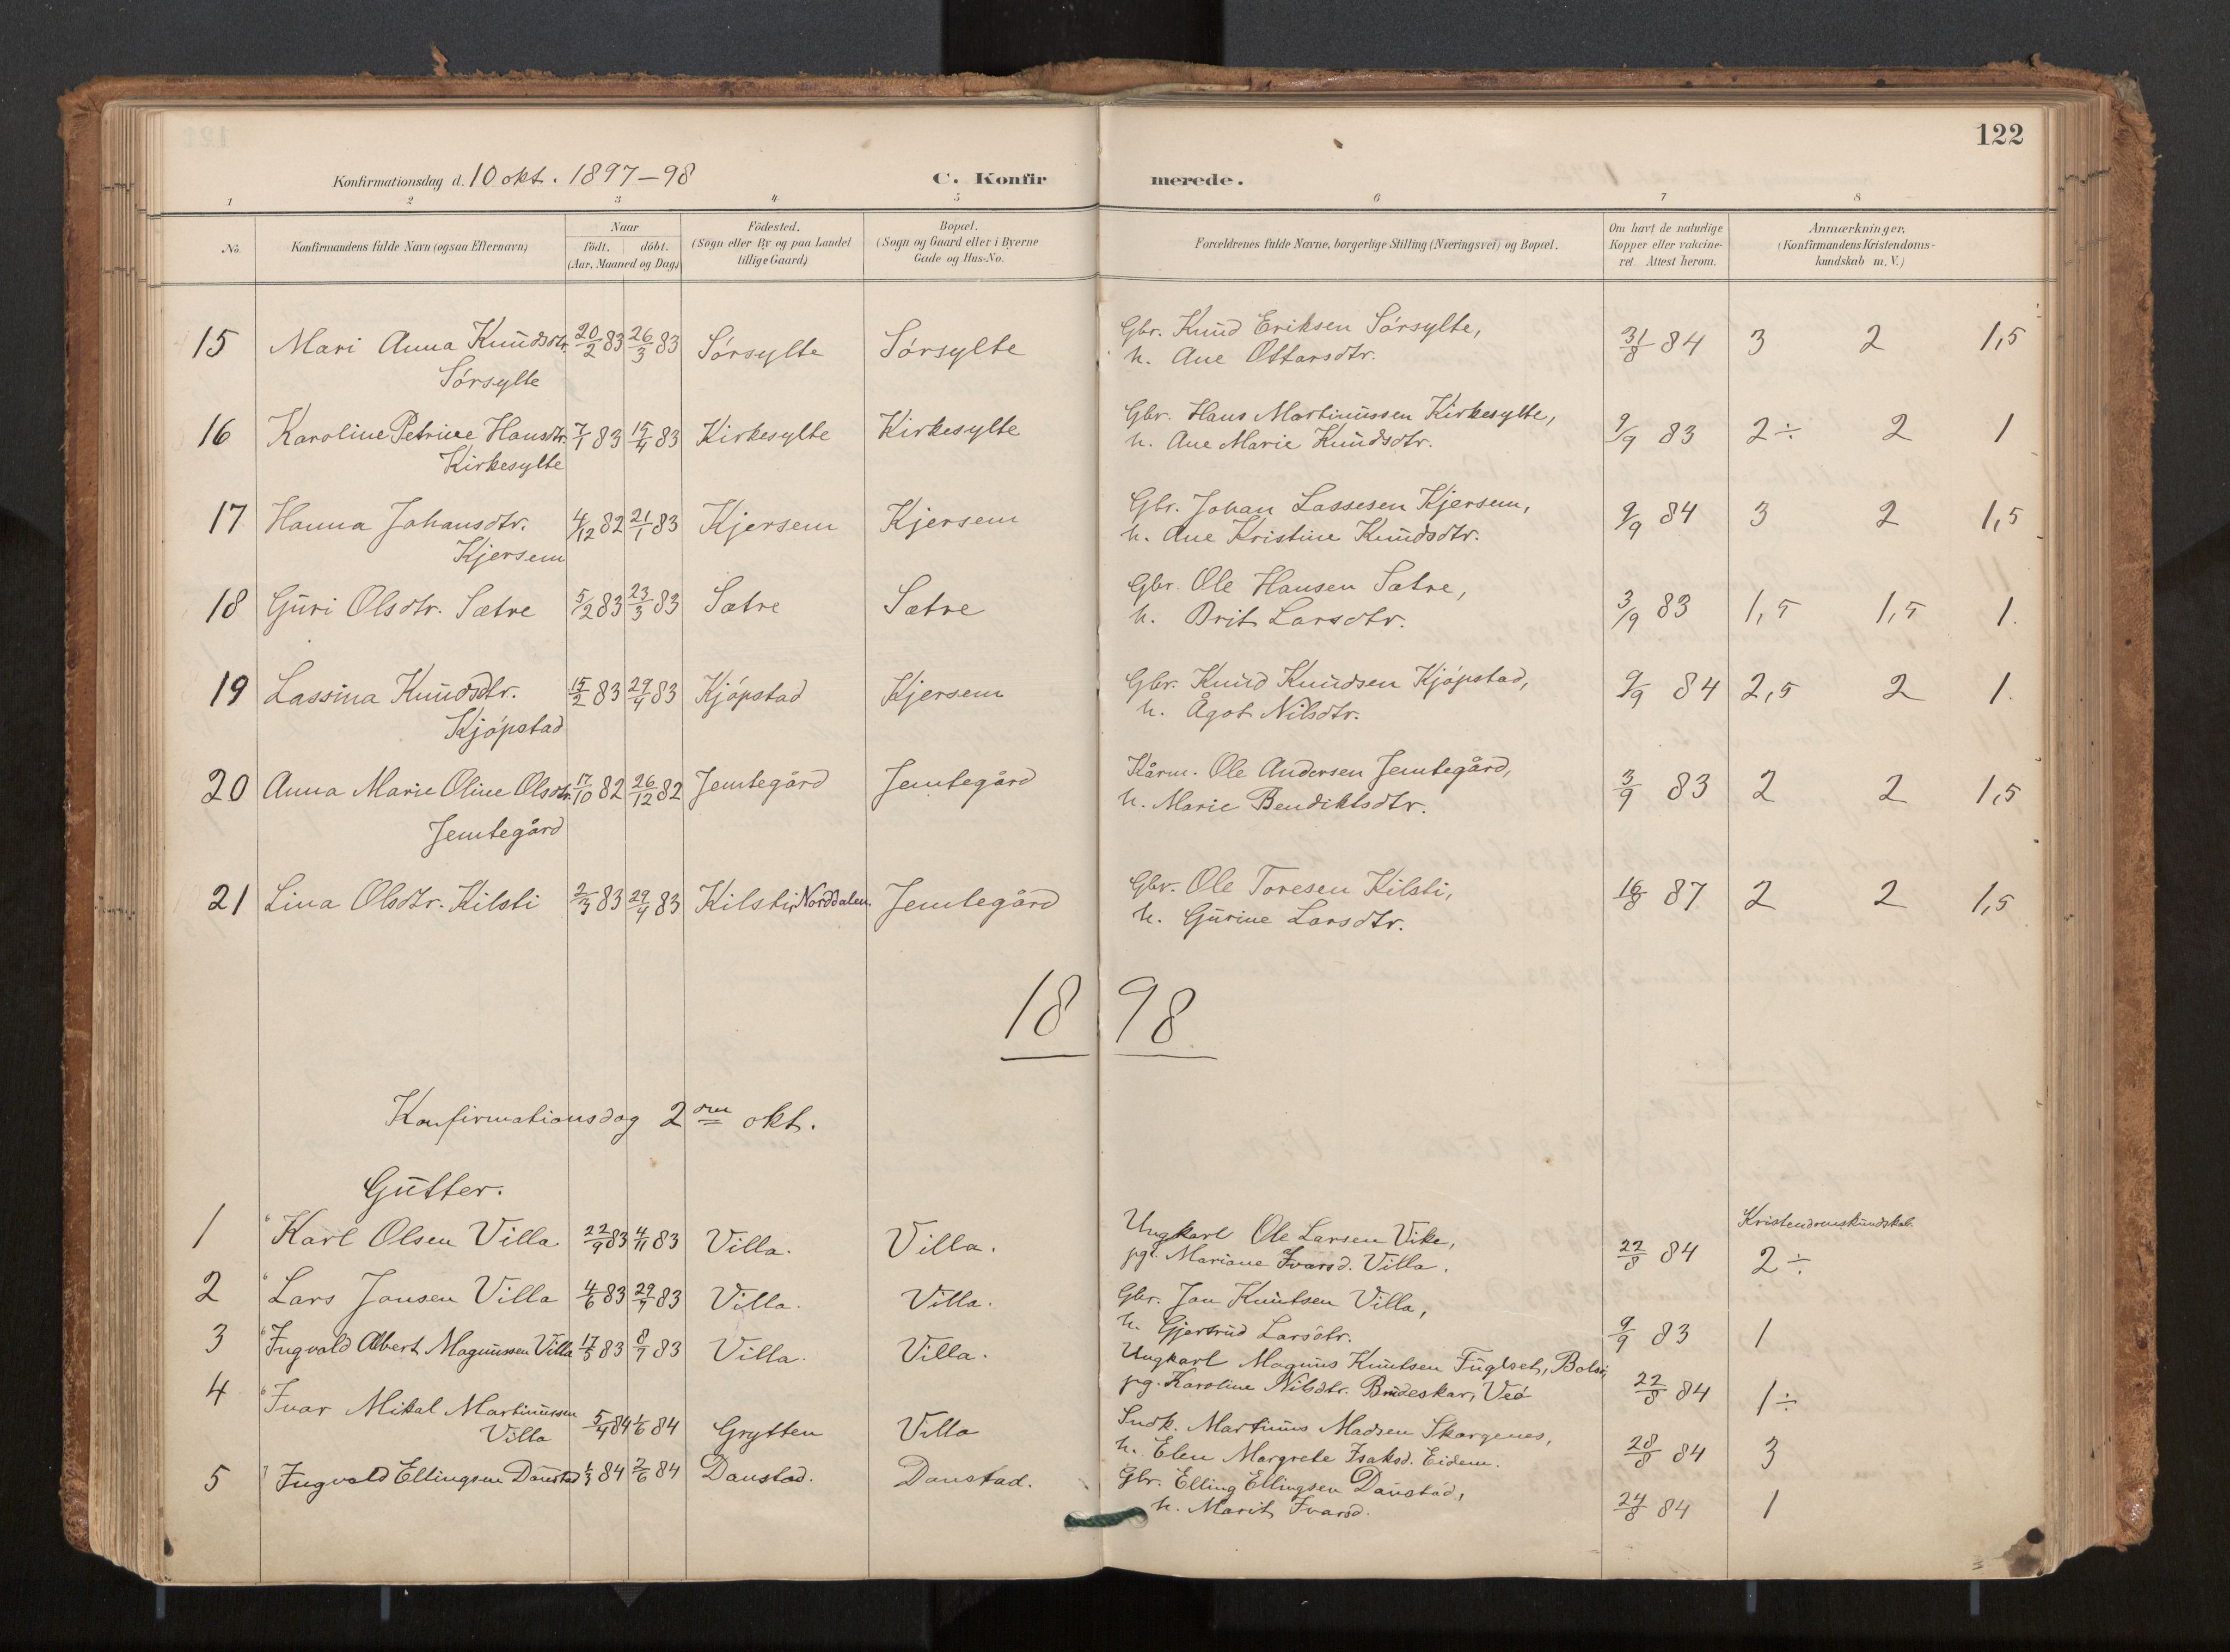 122
Konfirmationsdag d. 10 okt. 1897-98 C. Konfirmerede.
1 2 3 4 5 6 7 8
No. Konfirmandens fulde Navn (ogsaa Efternavn) Naar födt. döbt. (Aar, Maaned og Dag) Födested. (Sogn eller By og paa Landet tillige Gaard) Bopæl. (Sogn og Gaard eller i Byerne Gade og Hus-No. Forældrenes fulde Navne, borgerlige Stilling (Næringsvei) og Bopæl. Om havt de naturlige Kopper eller vakcineret. Attest herom. Anmærkninger, (Konfirmandens Kristendomskundskab m.V.)
15 Mari Anna Knudsdtr. 20/2 83 26/3 83 Sørsylte Sørsylte Gbr. Knud Eriksen Sørsylte, 31/8 84 3 2 1,5
Sørsylte h. Ane Ottarsdtr.
16 Karoline Petrine Hansdtr. 7/1 83 15/4 83 Kirkesylte Kirkesylte Gbr. Hans Martinussen Kirkesylte, 9/9 83 2÷ 2 1
Kirkesylte h. Ane Marie Knudsdtr.
17 Hanna Johansdtr. 4/12 82 21/1 83 Kjersem Kjersem Gbr. Johan Lassesen Kjersem, 9/9 84 3 2 1,5
Kjersem h. Ane Kristine Knudsdtr.
18 Guri Olsdtr. Sætre 5/2 83 23/3 83 Sætre Sætre Gbr. Ole Hansen Sætre, 3/9 83 1,5 1,5 1.
h. Brit Larsdtr.
19 Lassina Knudsdtr. 15/2 83 29/4 83 Kjøpstad Kjersem Gbr. Knud Knudsen Kjøpstad, 9/9 84 2,5 2 1.
Kjøpstad h. Ågot Nilsdtr.
20 Anna Marie Oline Olsdtr. 17/10 82 26/12 82 Jemtegård Jemtegård Kårm. Ole Andersen Jemtegård, 3/9 83 2 2 1,5
Jemtegård h. Marie Bendiktsdtr.
21 Lina Olsdtr. Kilsti 2/3 83 29/4 83 Kilsti, Norddalen. Jemtegård Gbr. Ole Toresen Kilsti, 16/8 87 2 2 1,5
h. Gurine Larsdtr.
1898
Konfirmationsdag 2den okt.
Gutter.
Kristendomskundskab.
1 Karl Olsen Villa 22/9 83 4/11 83 Villa. Villa. Ungkarl Ole Larsen Vike, 22/8 84 2÷
pg. Mariane Ivarsd. Villa.
2 Lars Jonsen Villa 4/6 83 29/7 83 Villa. Villa. Gbr. Jon Knutsen Villa, 9/9 83 1
h. Gjertrud Larsdtr.
3 Ingvald Albert Magnussen Villa 17/5 83 8/7 83 Villa. Villa. Ungkarl Magnus Knutsen Fuglset, Bolsø, 22/8 84 1÷
pg. Karoline Nilsdtr. Brudeskar, Veø
4 Ivar Mikal Martinussen 5/4 84 1/6 84 Grytten Villa Indk. Martinus Madsen Skorgenes, 28/8 84 3
Villa h. Elen Margrete Isaksd. Eidem.
5 Ingvald Ellingsen Daustad 1/3 84 2/6 84 Daustad. Daustad. Gbr. Elling Ellingsen Daustad, 24/8 84 1
h. Marit Ivarsd.